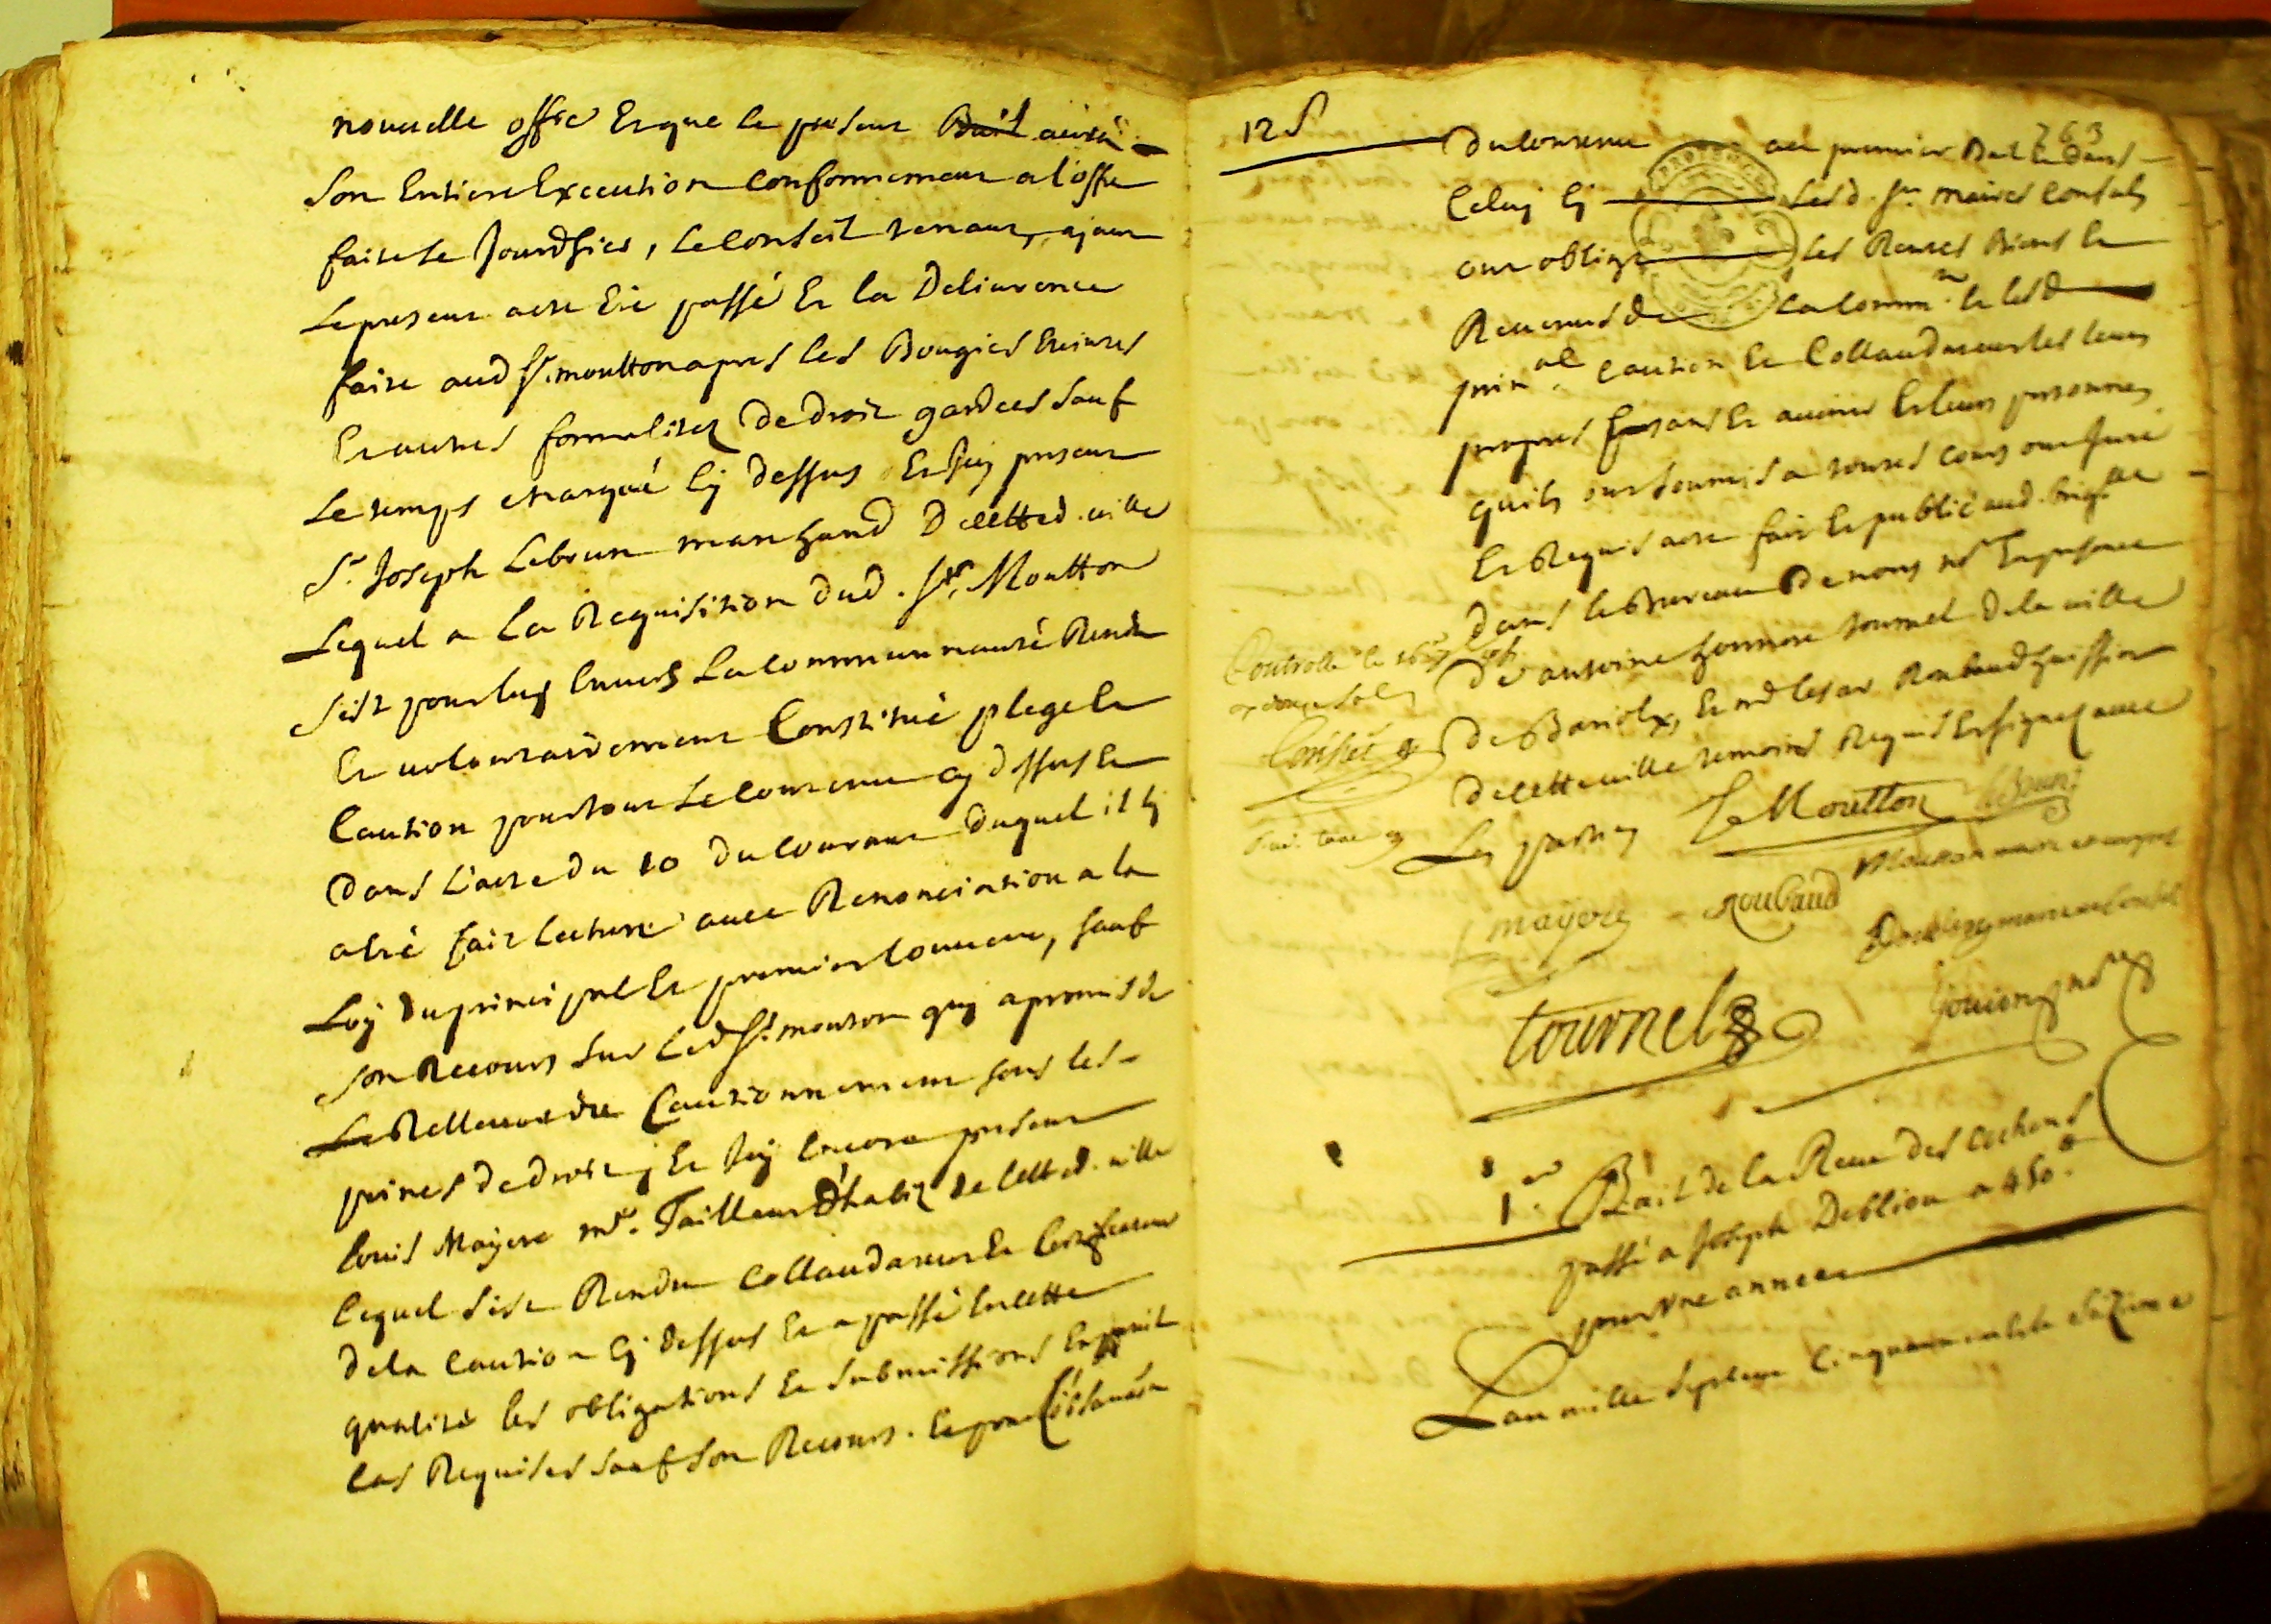 nouvelle offre Et que Le present Bail aura
Son Entiere Execution conformement a l'offre
faite Le Jourdhier, Le conseil tenant, ajant
Le present acte Eté passé Et la Deliurence
faite aud Sr. moutton apres les Bougies Eteintes
Et autres formalitez De droit gardées Sauf
Le temps marqué Cy dessus Et Icy present
Sr. Joseph Lebrun marchand De cetted. ville
Lequel a La Requisition dud. Sr. Moutton
S'est pour luy Envers La communnauté Rendu
Et volontairement Constitué plege Et
Caution pour tout Le contenu cy dessus Et
Dans L'acte du 10 du courant Duquel il Cy
a Eté fait Lecture avec Renonciation a la
Loy du principal Et premier Convenu, sauf
Son Recours sur Led Sr. mouton quy a promis de
Le Rellever du Cautionnement sous les
peines de droit, Et Icy Encore present
Louis Mayere me. Tailleur D'habitz de Cetted. ville
Lequel s'est Rendu Collaudateur Et Certificateur
De la Caution Cy dessus Et a passé En cette
qualité les obligations Et submissions En pareil
Cas Requises sauf son Recours. Et pour l'observation
12 S
763
Du Contenu au premier Bail Et dans
Celuy Cy Lesd. Srs maires Consuls
ont obligé Les Rentes Biens Et
Revenus de La Commté. Et Lesd
prinal. Caution Et Collaudateur les leurs
propres presans Et avenir Et leurs personnes
quils ont soumis a toutes Cours ont Juré
Et Requis acte fait Et publié aud. brigolle
Dans le Bureau De nous nre En presence
De antoine honnore tournel De la ville
De Bariolx, Et md Cesar Roubaud huissier
De cette ville temoins Requis Et signez avec
Les partyes
Controllé le
Le Moutton Lebrun
mayere Roubaud
tournel
1er. Bail de la Reve des cochons
passé a Joseph Deblieu a 450 #
pour Une année
L'an mille sept cens Cinquante Et le seizieme